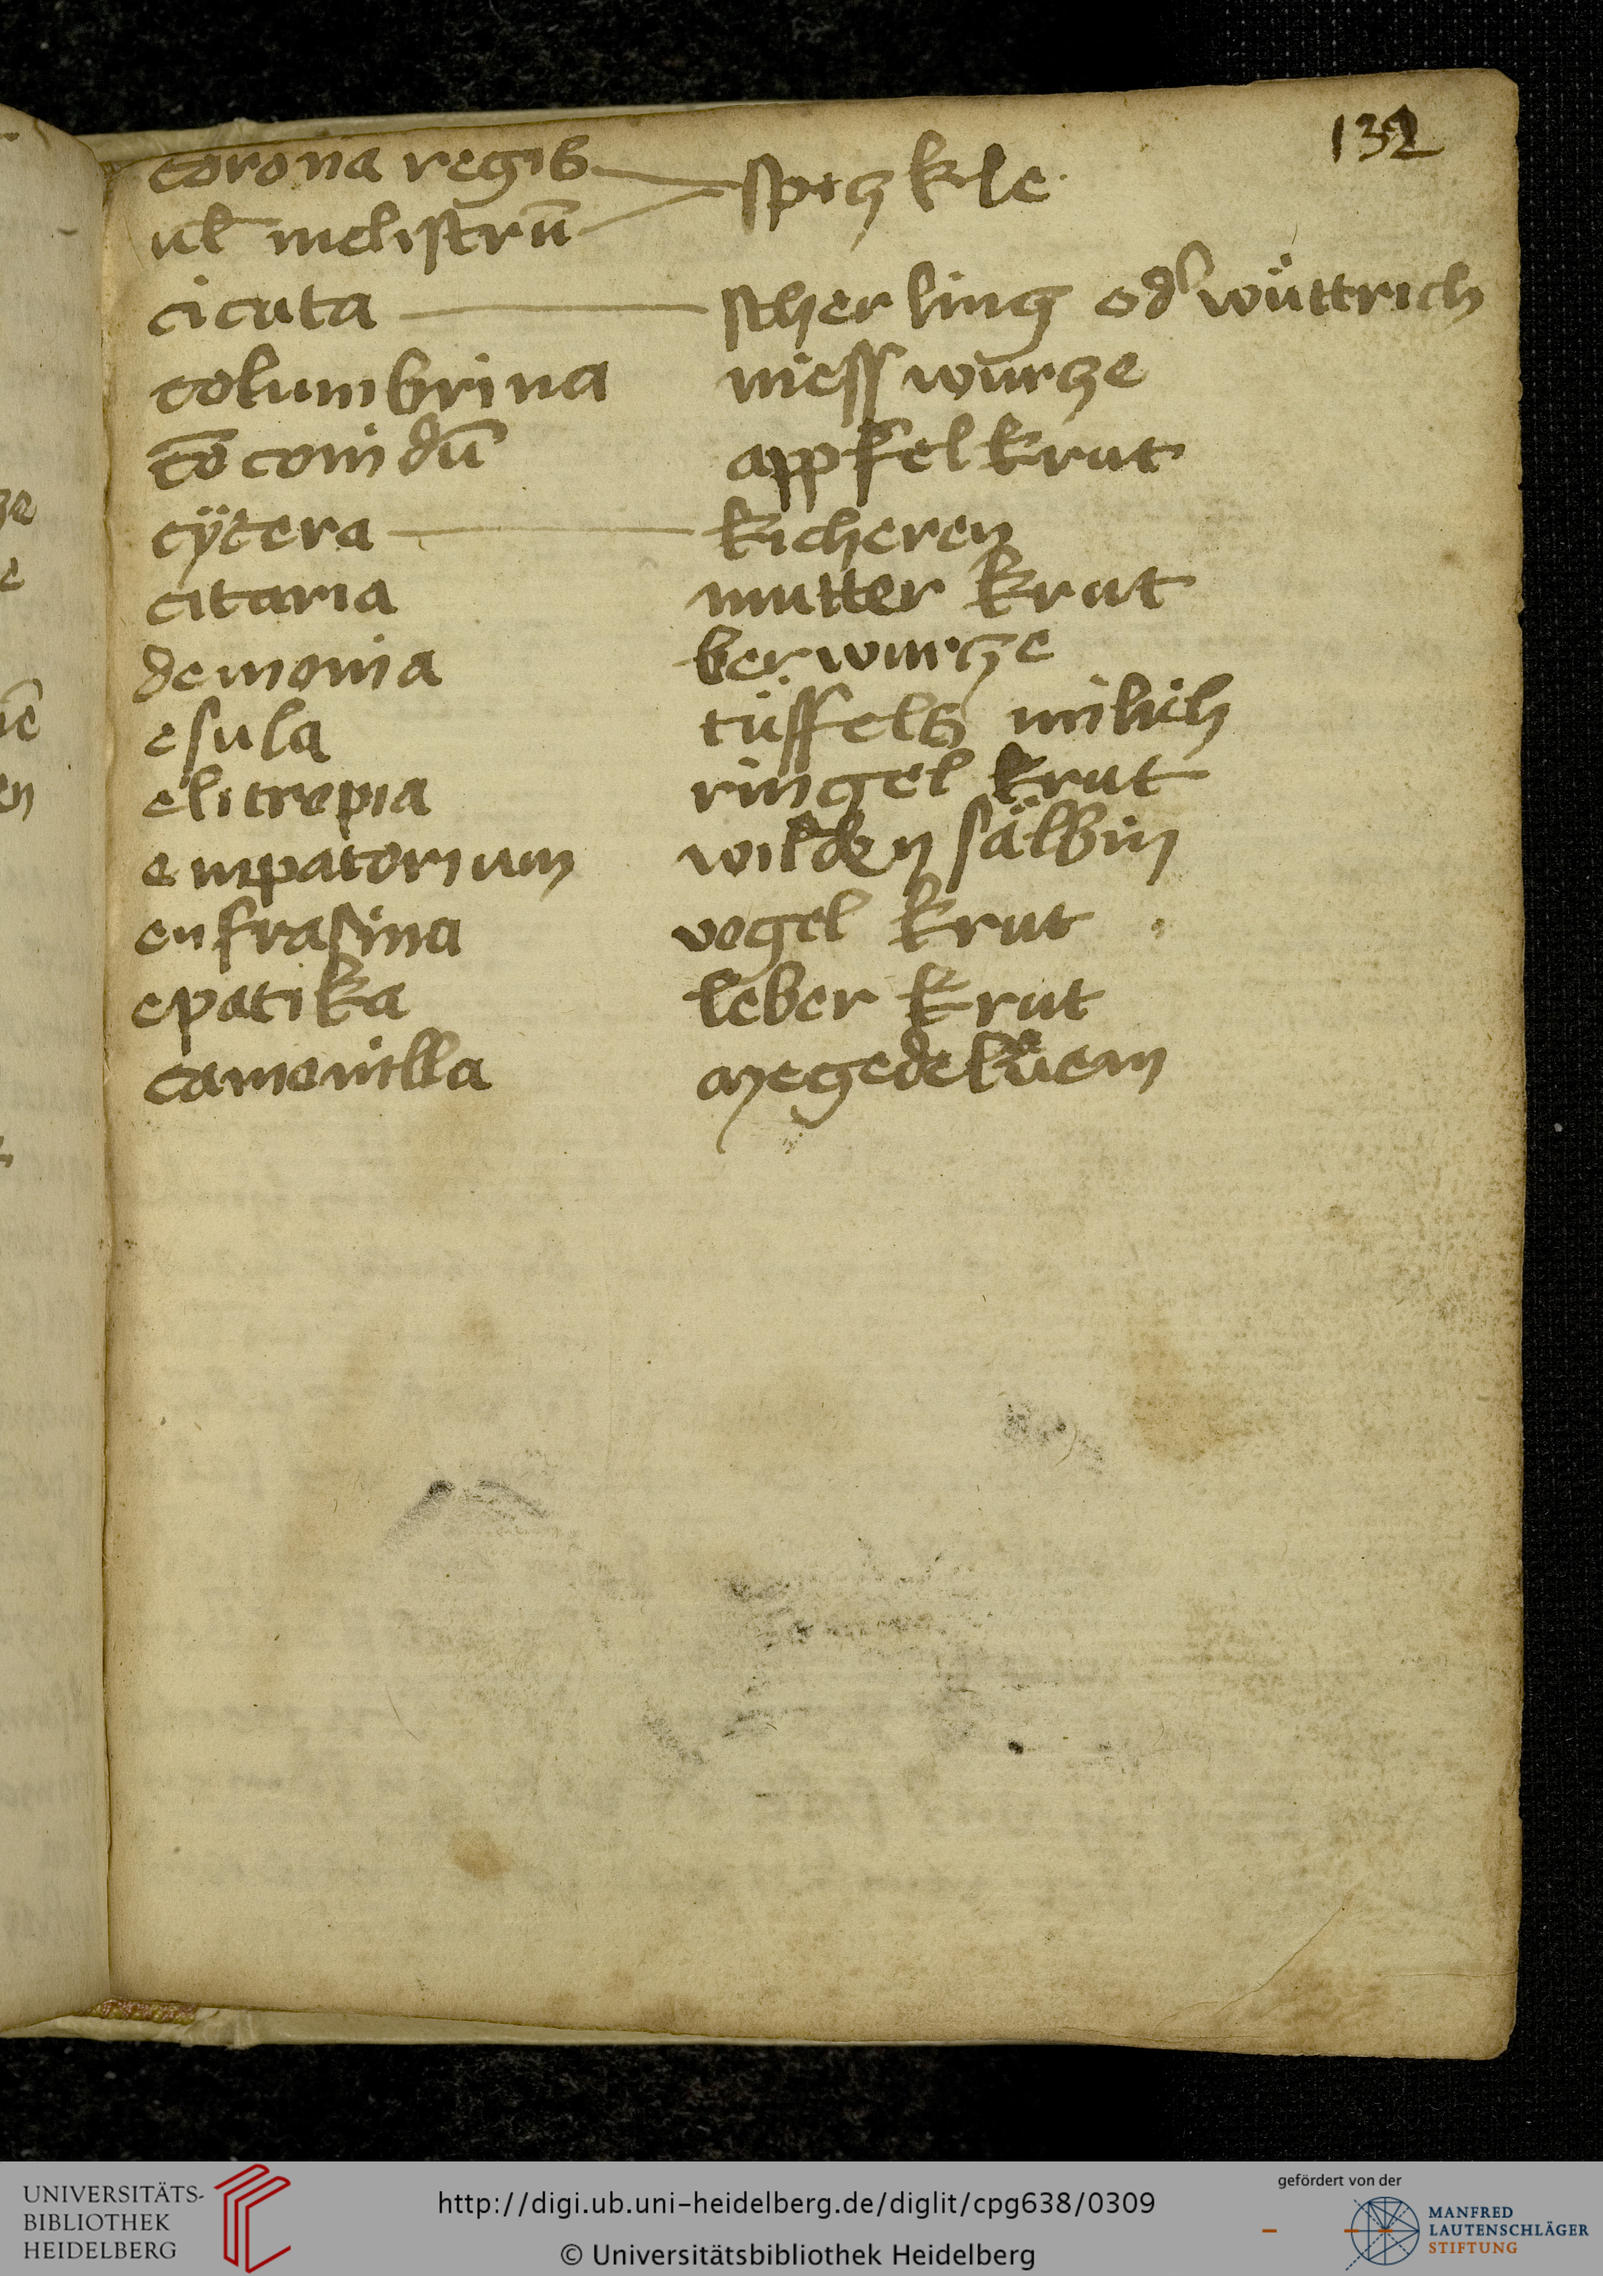 132
corona regis spiczkle
ul̄ melistrū
cicuta scherling od' wüttrich
columbrina niesswurcze
cōconidū appfelkrut
cÿcera kicheren
citaria mutter krut
demonia berwurcze
esula tüffels milich
elitropia ringel krut
empatorium wilden sälbin
eufrasina vogel krut
epatika leber krut
camomilla
UNIVERSITÄTS-
BIBLIOTHEK
HEIDELBERG
http://digi.ub.uni-heidelberg.de/diglit/cpg638/0309
© Universitätsbibliothek Heidelberg
gefördert von der
MANFRED
LAUTENSCHLÄGER
STIFTUNG